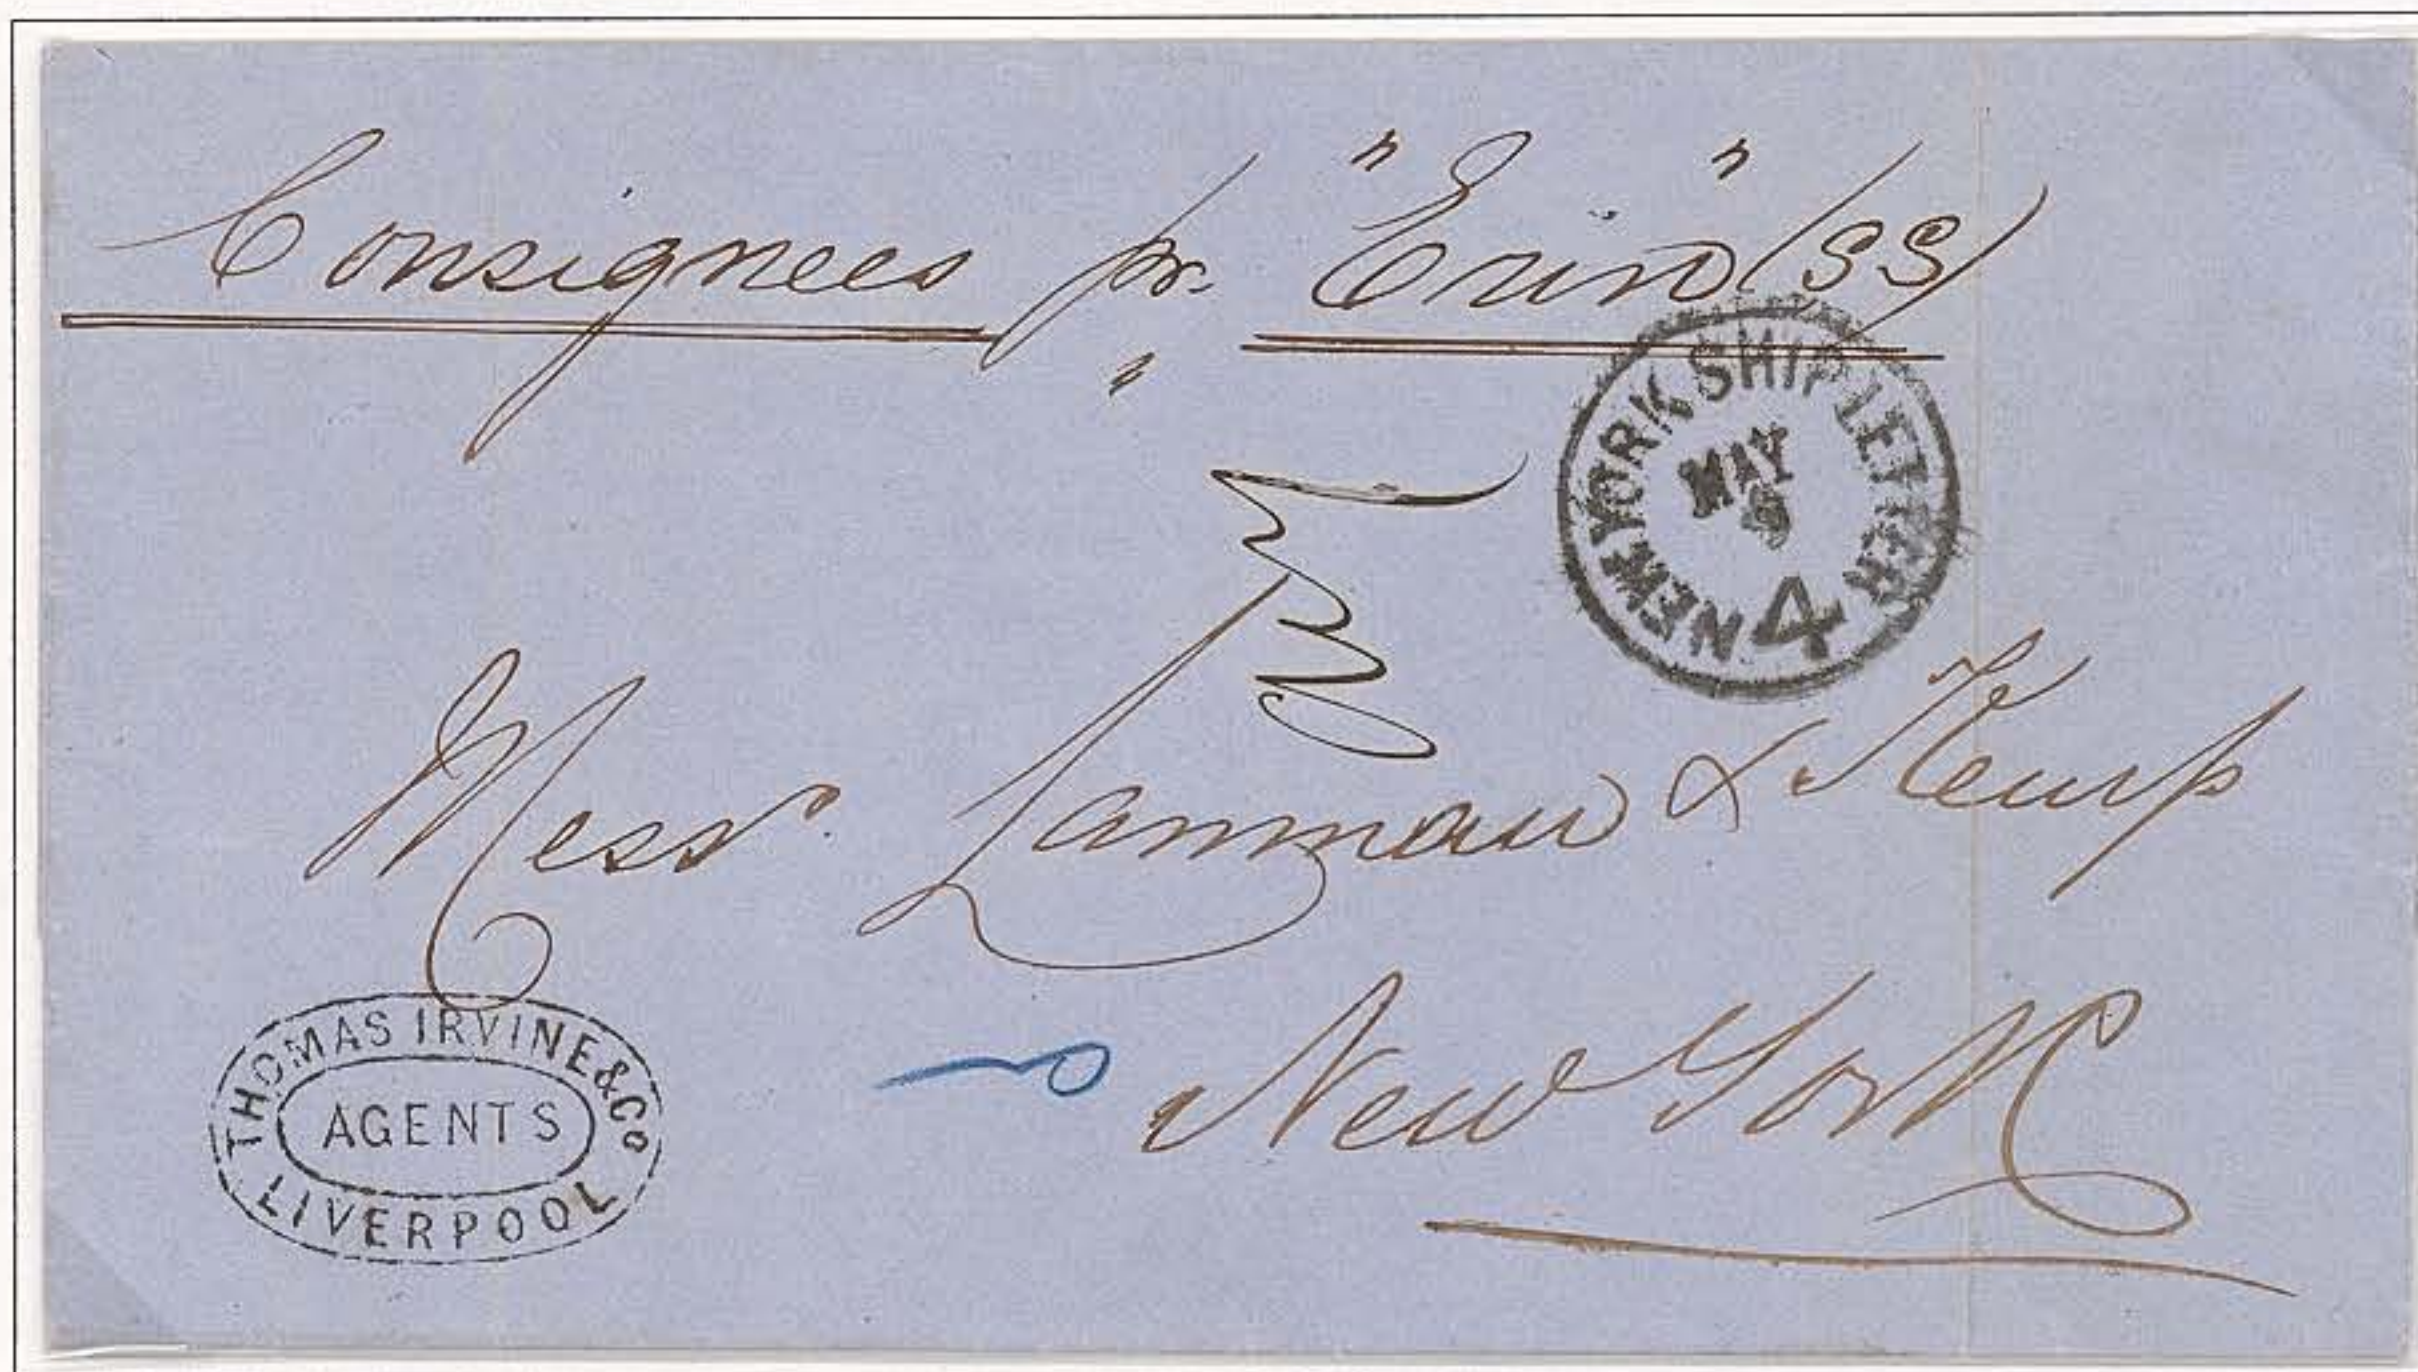 Consignees pr. "Erin" (SS)
NEW YORK SHIP LETTER
MAY
4
Messrs. Lanman & Kemp
New York
THOMAS IRVINE & Co
AGENTS
LIVERPOOL